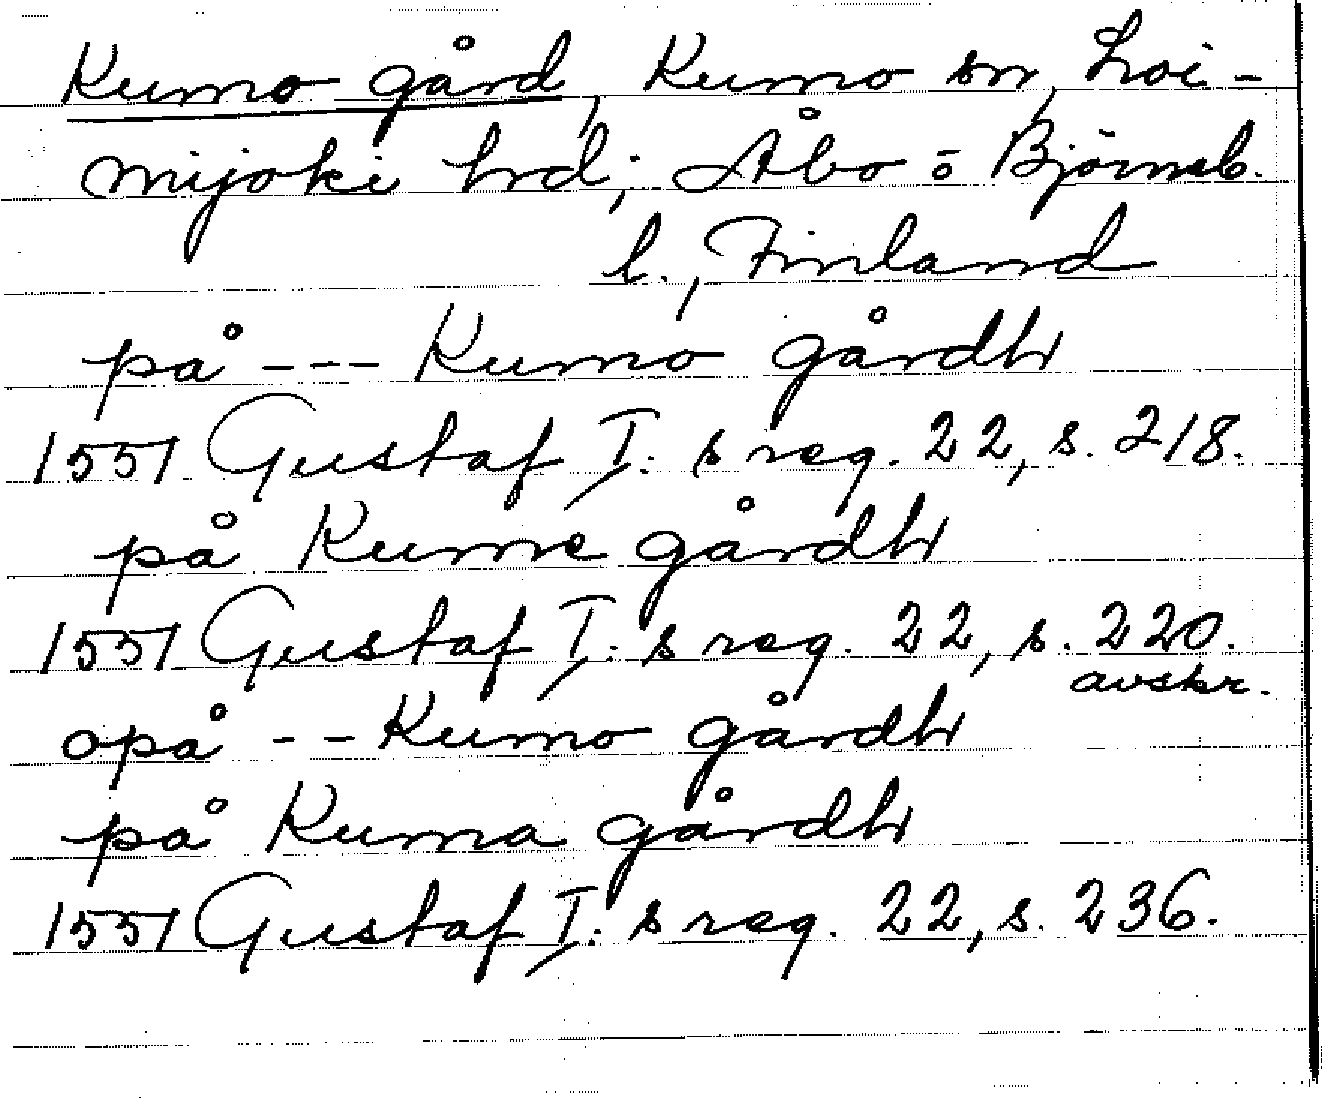 Kumo gård, Kumo sn, Loi-
mijoki hrd; Åbo o Björneb.
l., Finland
på --- Kumo gårdh
1551 Gustaf I:s reg. 22, s. 218.
på Kume gårdh
1551 Gustaf I:s reg. 22, s. 220.
avskr.
opå -- Kumo gårdh
på Kuma gårdh
1551 Gustaf I:s reg. 22, s. 236.